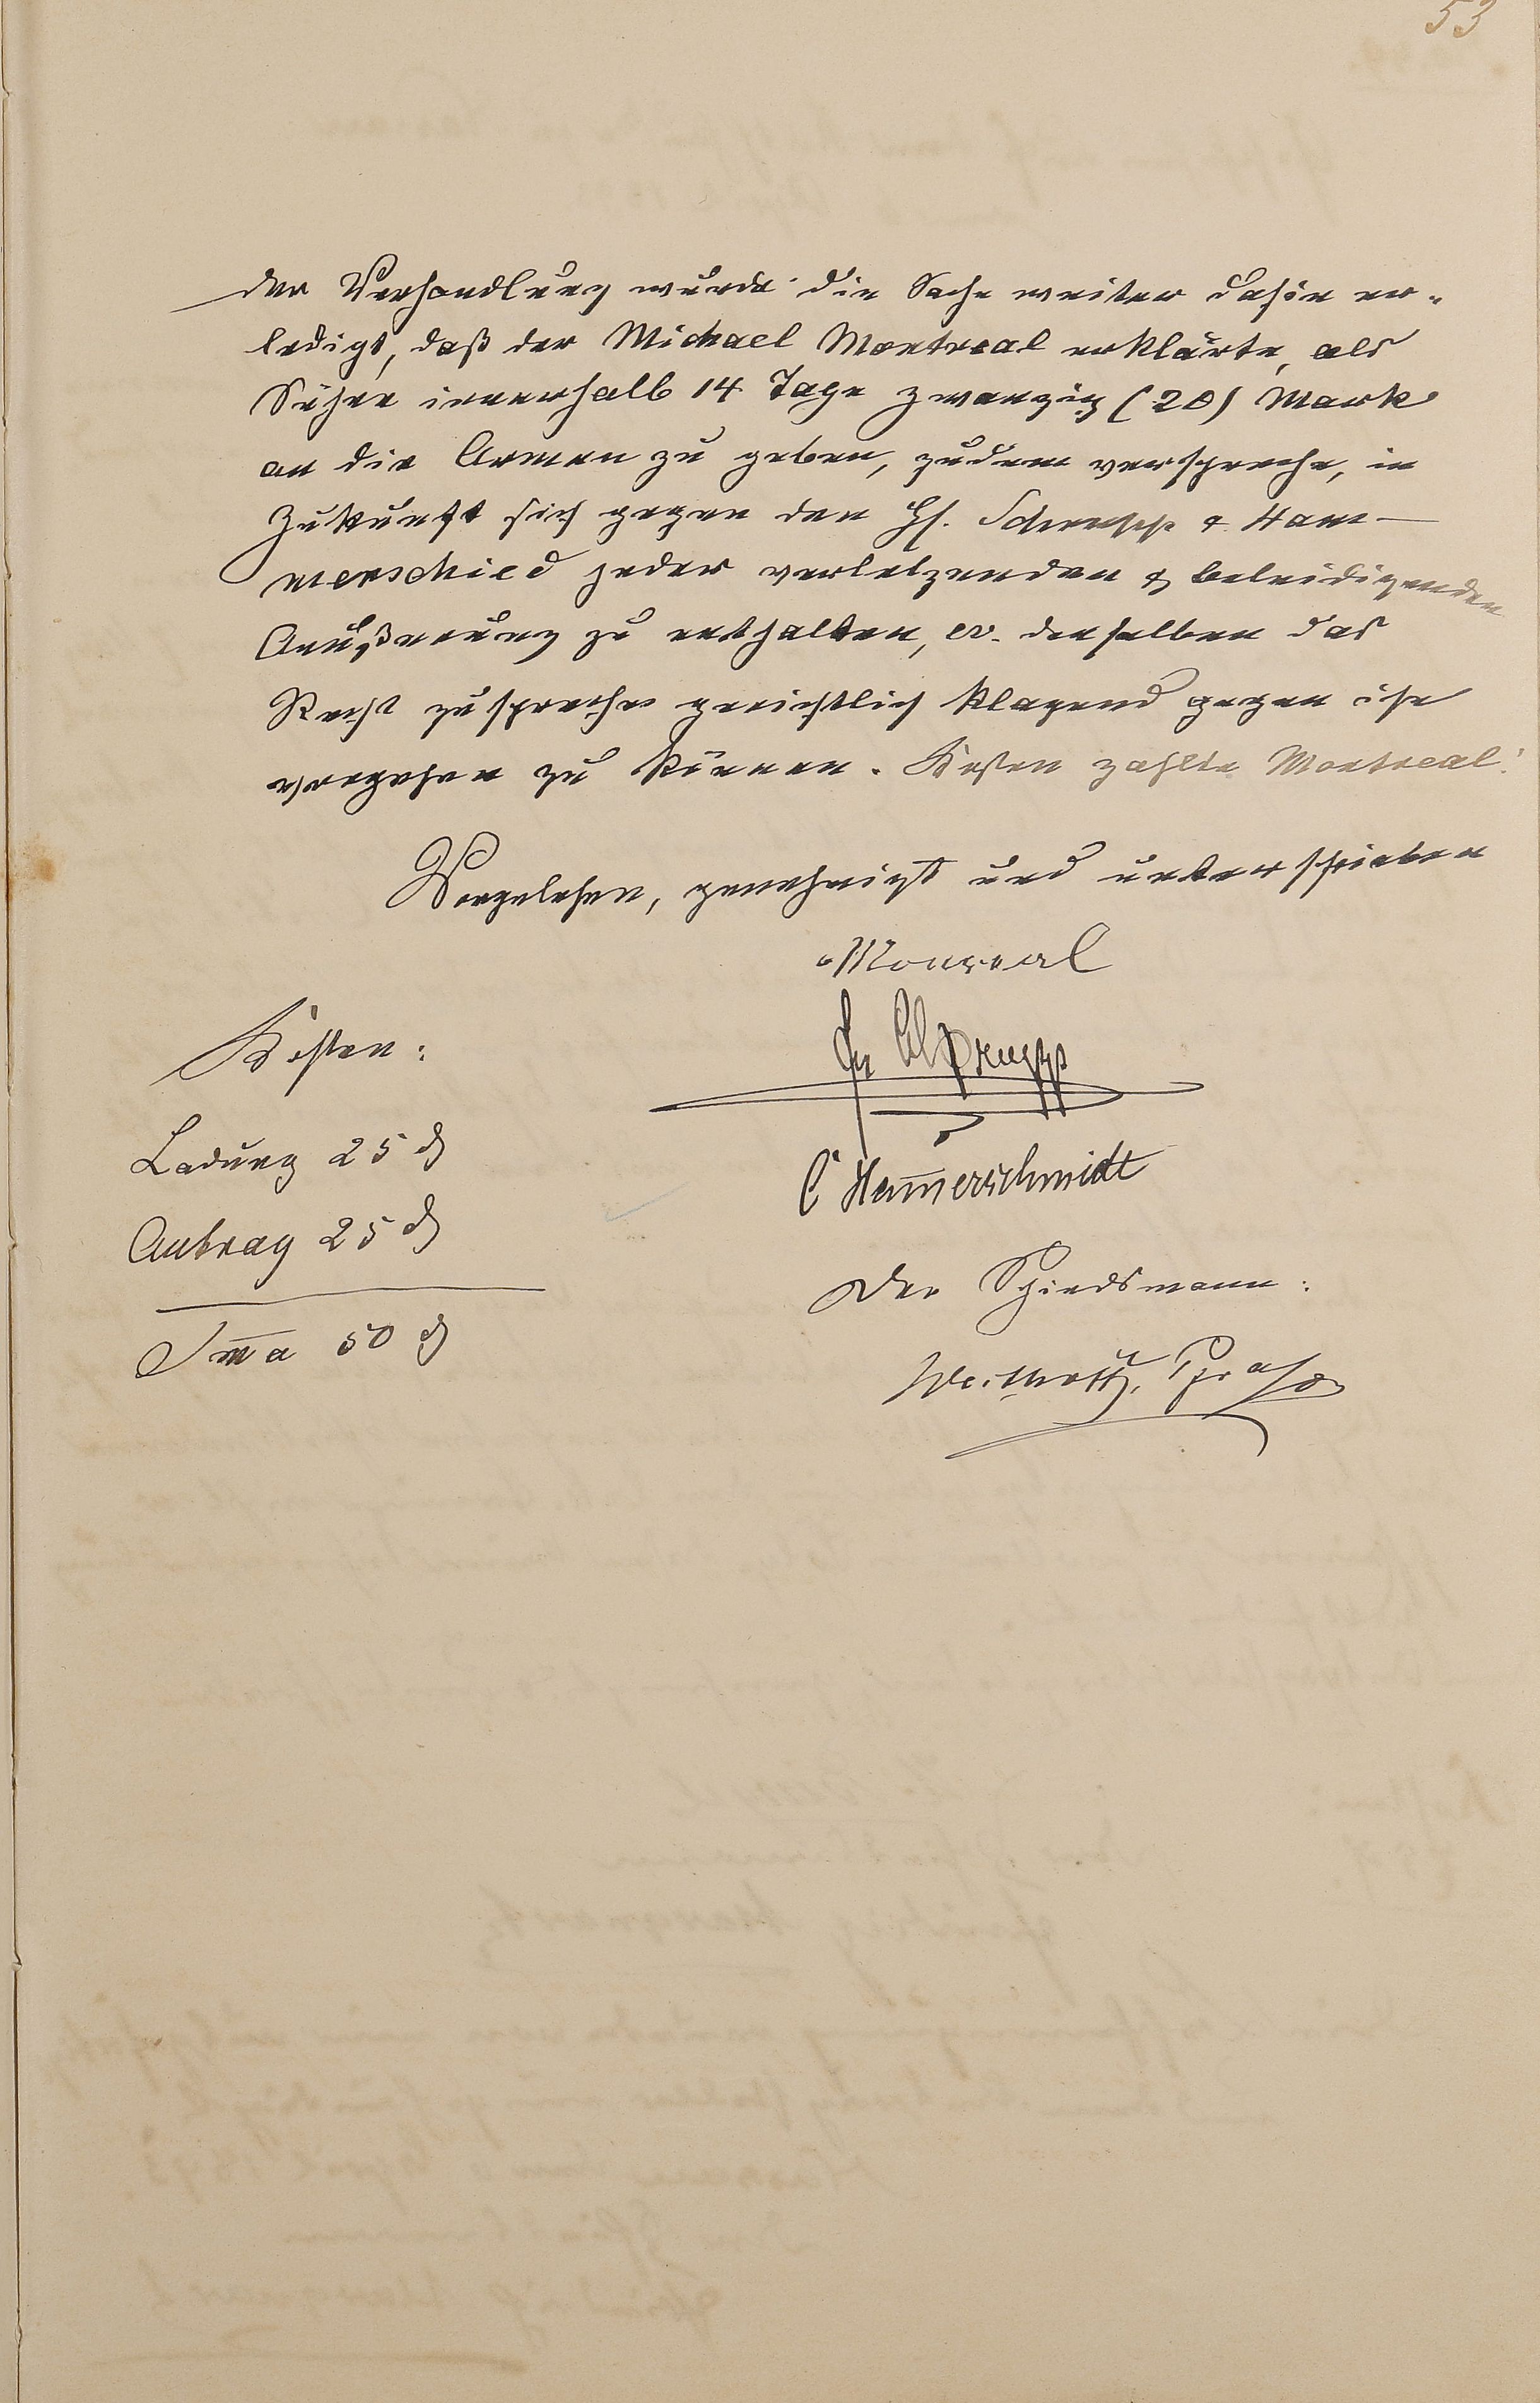 53
der Verhandlung wurde die Sache weiter dahin er-
ledigt, daß der Michael Montreal erklärte, als
Sühne innerhalb 14 Tage zwanzig (20) Mark
an die Armen zu geben, zudem verspreche, in
Zukunft sich gegen den H. & Ham-
merschied jeder verletzenden & beleidigenden
Aeußerung zu enthalten, ev. denselben das
Recht zuspreche gerichtlich klagend gegen ihn
vorgehen zu können. Kosten zahlte Montreal.
Vorgelesen, genehmigt und unterschrieben
Monreal
Kosten:
Ladung 25 ₰
C Hammerschmidt
Antrag 25 ₰
Der Schiedsmann:
Sma 50 ₰